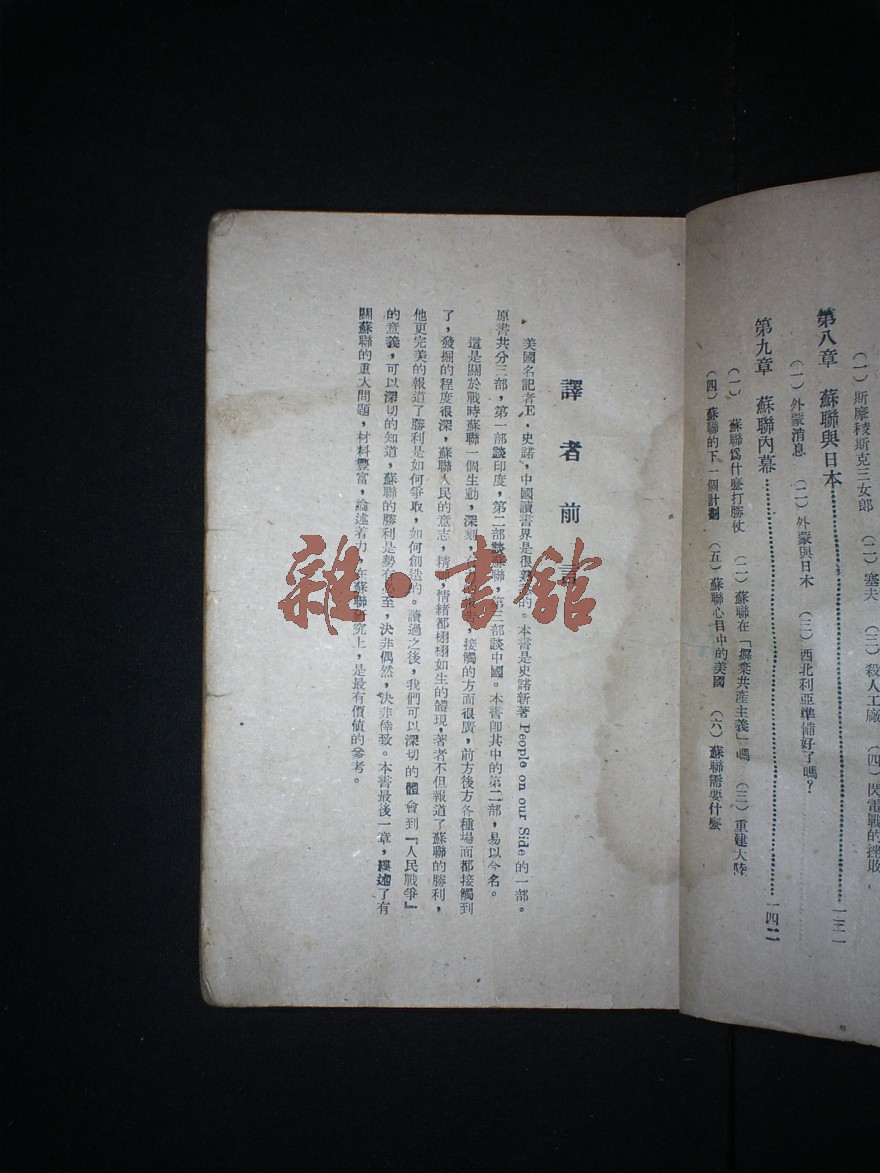 (一)斯摩稜斯克三女郎 (二)塞夫 (三)殺人工廠 (四)閃電戰的挫敗
第八章 蘇聯與日本……一三一
(一)外蒙消息 (二)外蒙與日本 (三)西北利亞準備好了嗎?
第九章 蘇聯內幕……一四二
(一)蘇聯爲什麼打勝仗 (二)蘇聯在「摒棄共產主義」嗎 (三)重建大陸
(四)蘇聯的下一個計劃 (五)蘇聯心目中的美國 (六)蘇聯需要什麼
譯者前言
美國名記者E.史諾,中國讀書界是很熟的。本書是史諾新著People on our Side的一部。
原書共分三部,第一部談印度,第二部談蘇聯,第三部談中國。本書即其中的第二部,易以今名。
這是關於戰時蘇聯一個生動,深刻,接觸的方面很廣,前方後方各種場面都接觸到
了,發掘的程度很深,蘇聯人民的意志,精情緒都栩栩如生的體現,著者不但報道了蘇聯的勝利,
他更完美的報道了勝利是如何爭取,如何創造的。讀過之後,我們可以深切的體會到『人民戰爭』
的意義,可以深切的知道,蘇聯的勝利是勢在必至,決非偶然,決非倖致。本書最後一章,縷述了有
關蘇聯的重大問題,材料豐富,論述着力,在蘇聯研究上,是最有價值的參考。
雜·書館